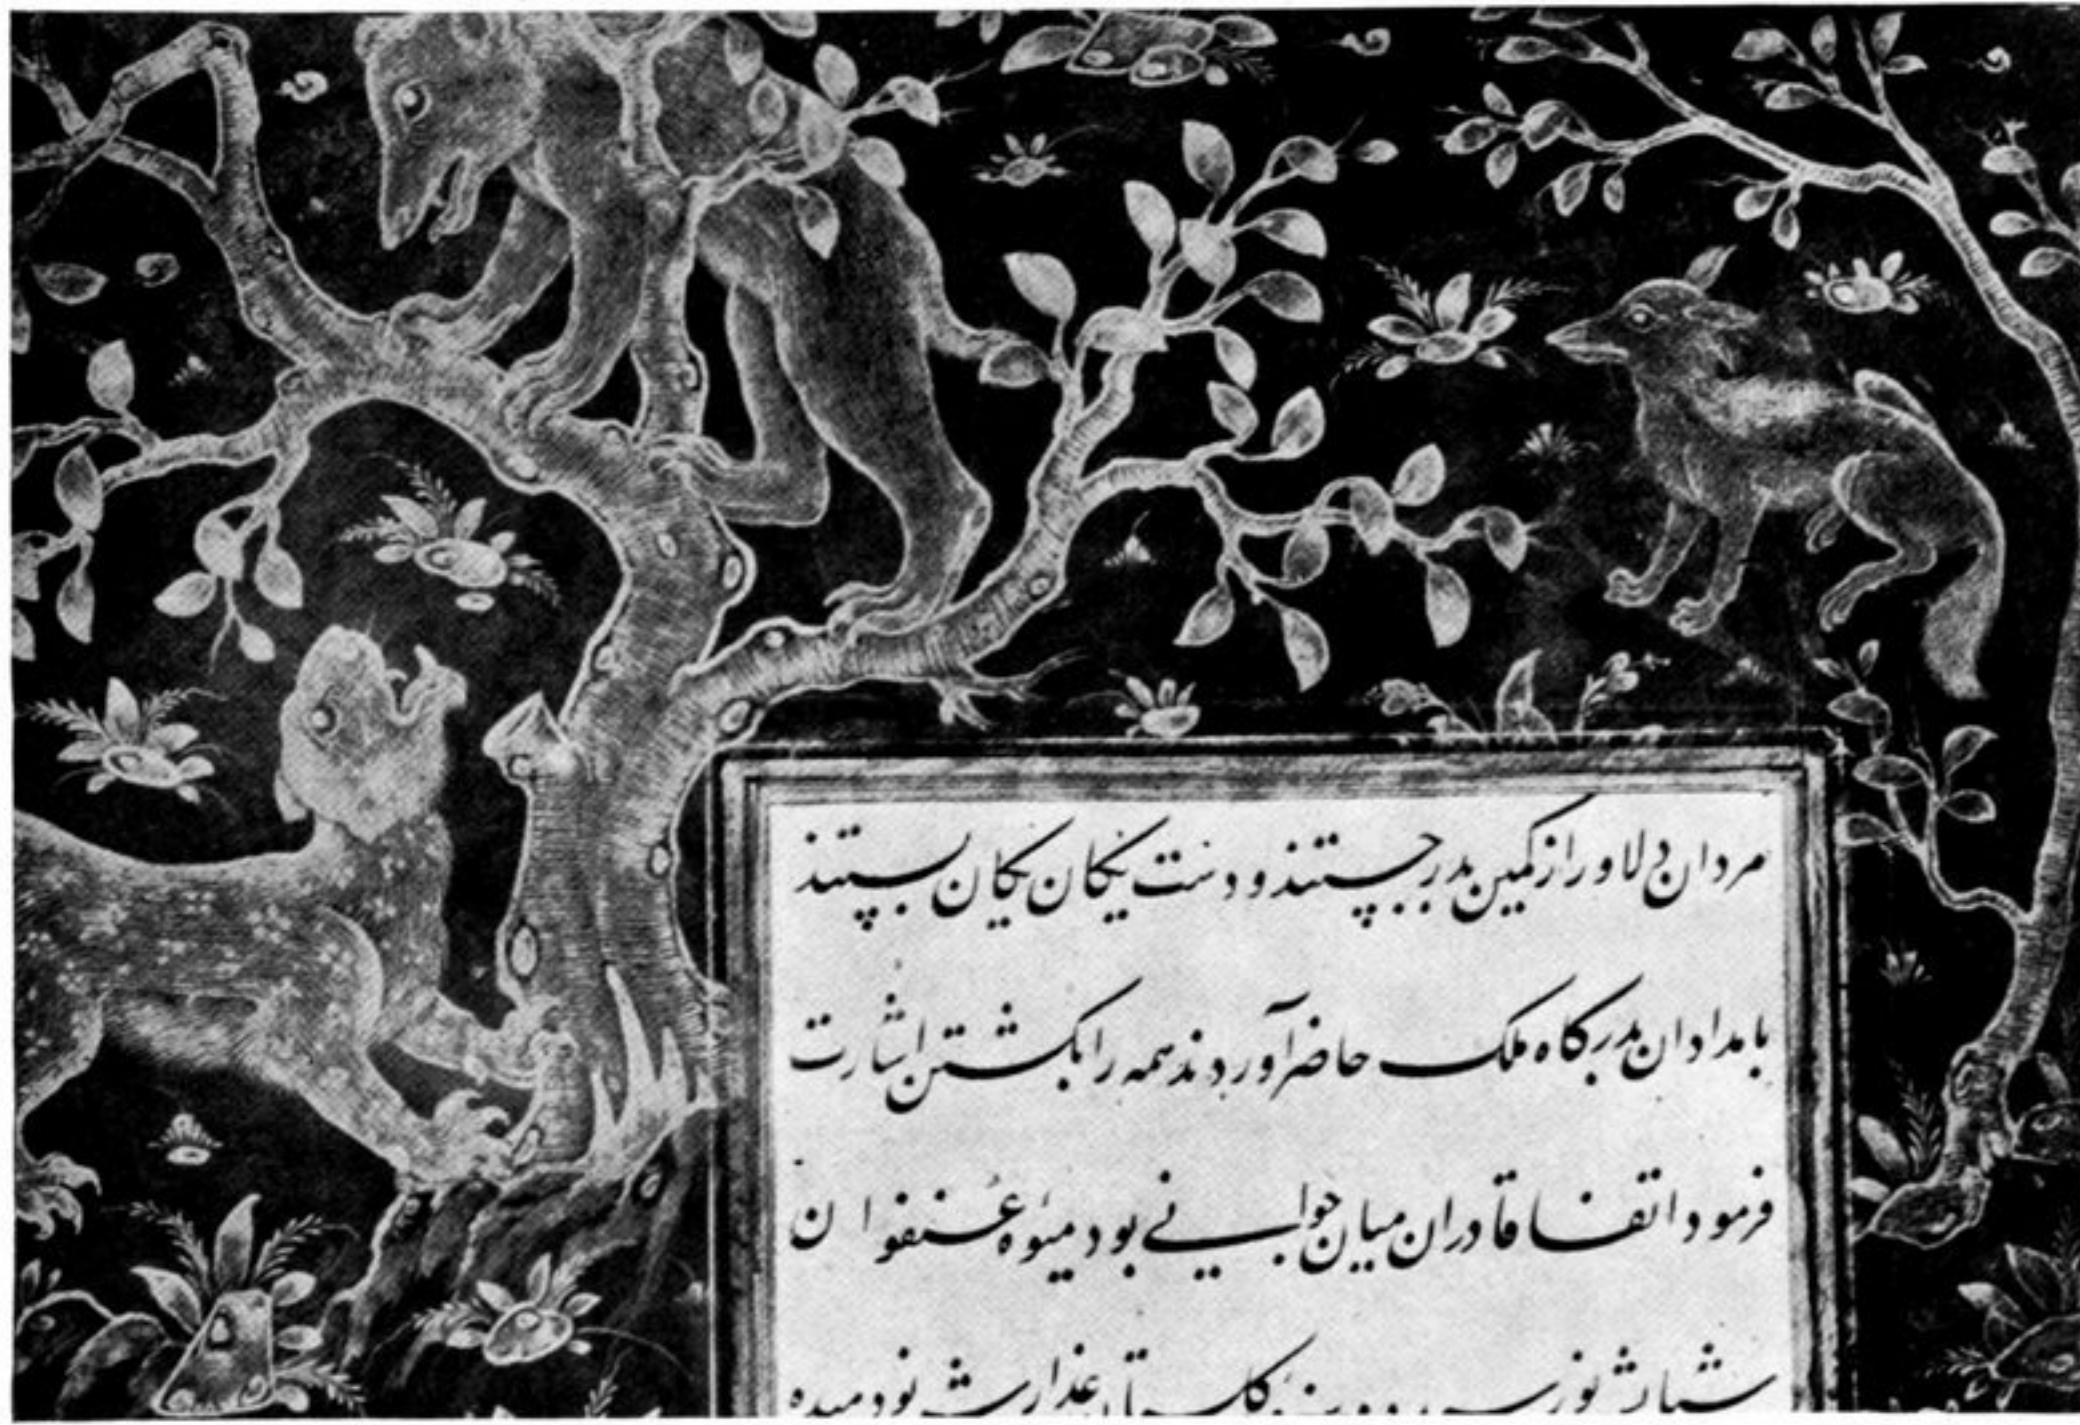 مردان دلاور از کمین بدر جستند و دست یکان یکان ببستند
بامدادان بدرگاه ملک حاضر آوردند همه را بکشتن اشارت
فرمود اتفاقا در ان میان جوانی بود میوه عنفوان
شبابش نورسیده و سبزه گلستان عذارش نودمیده